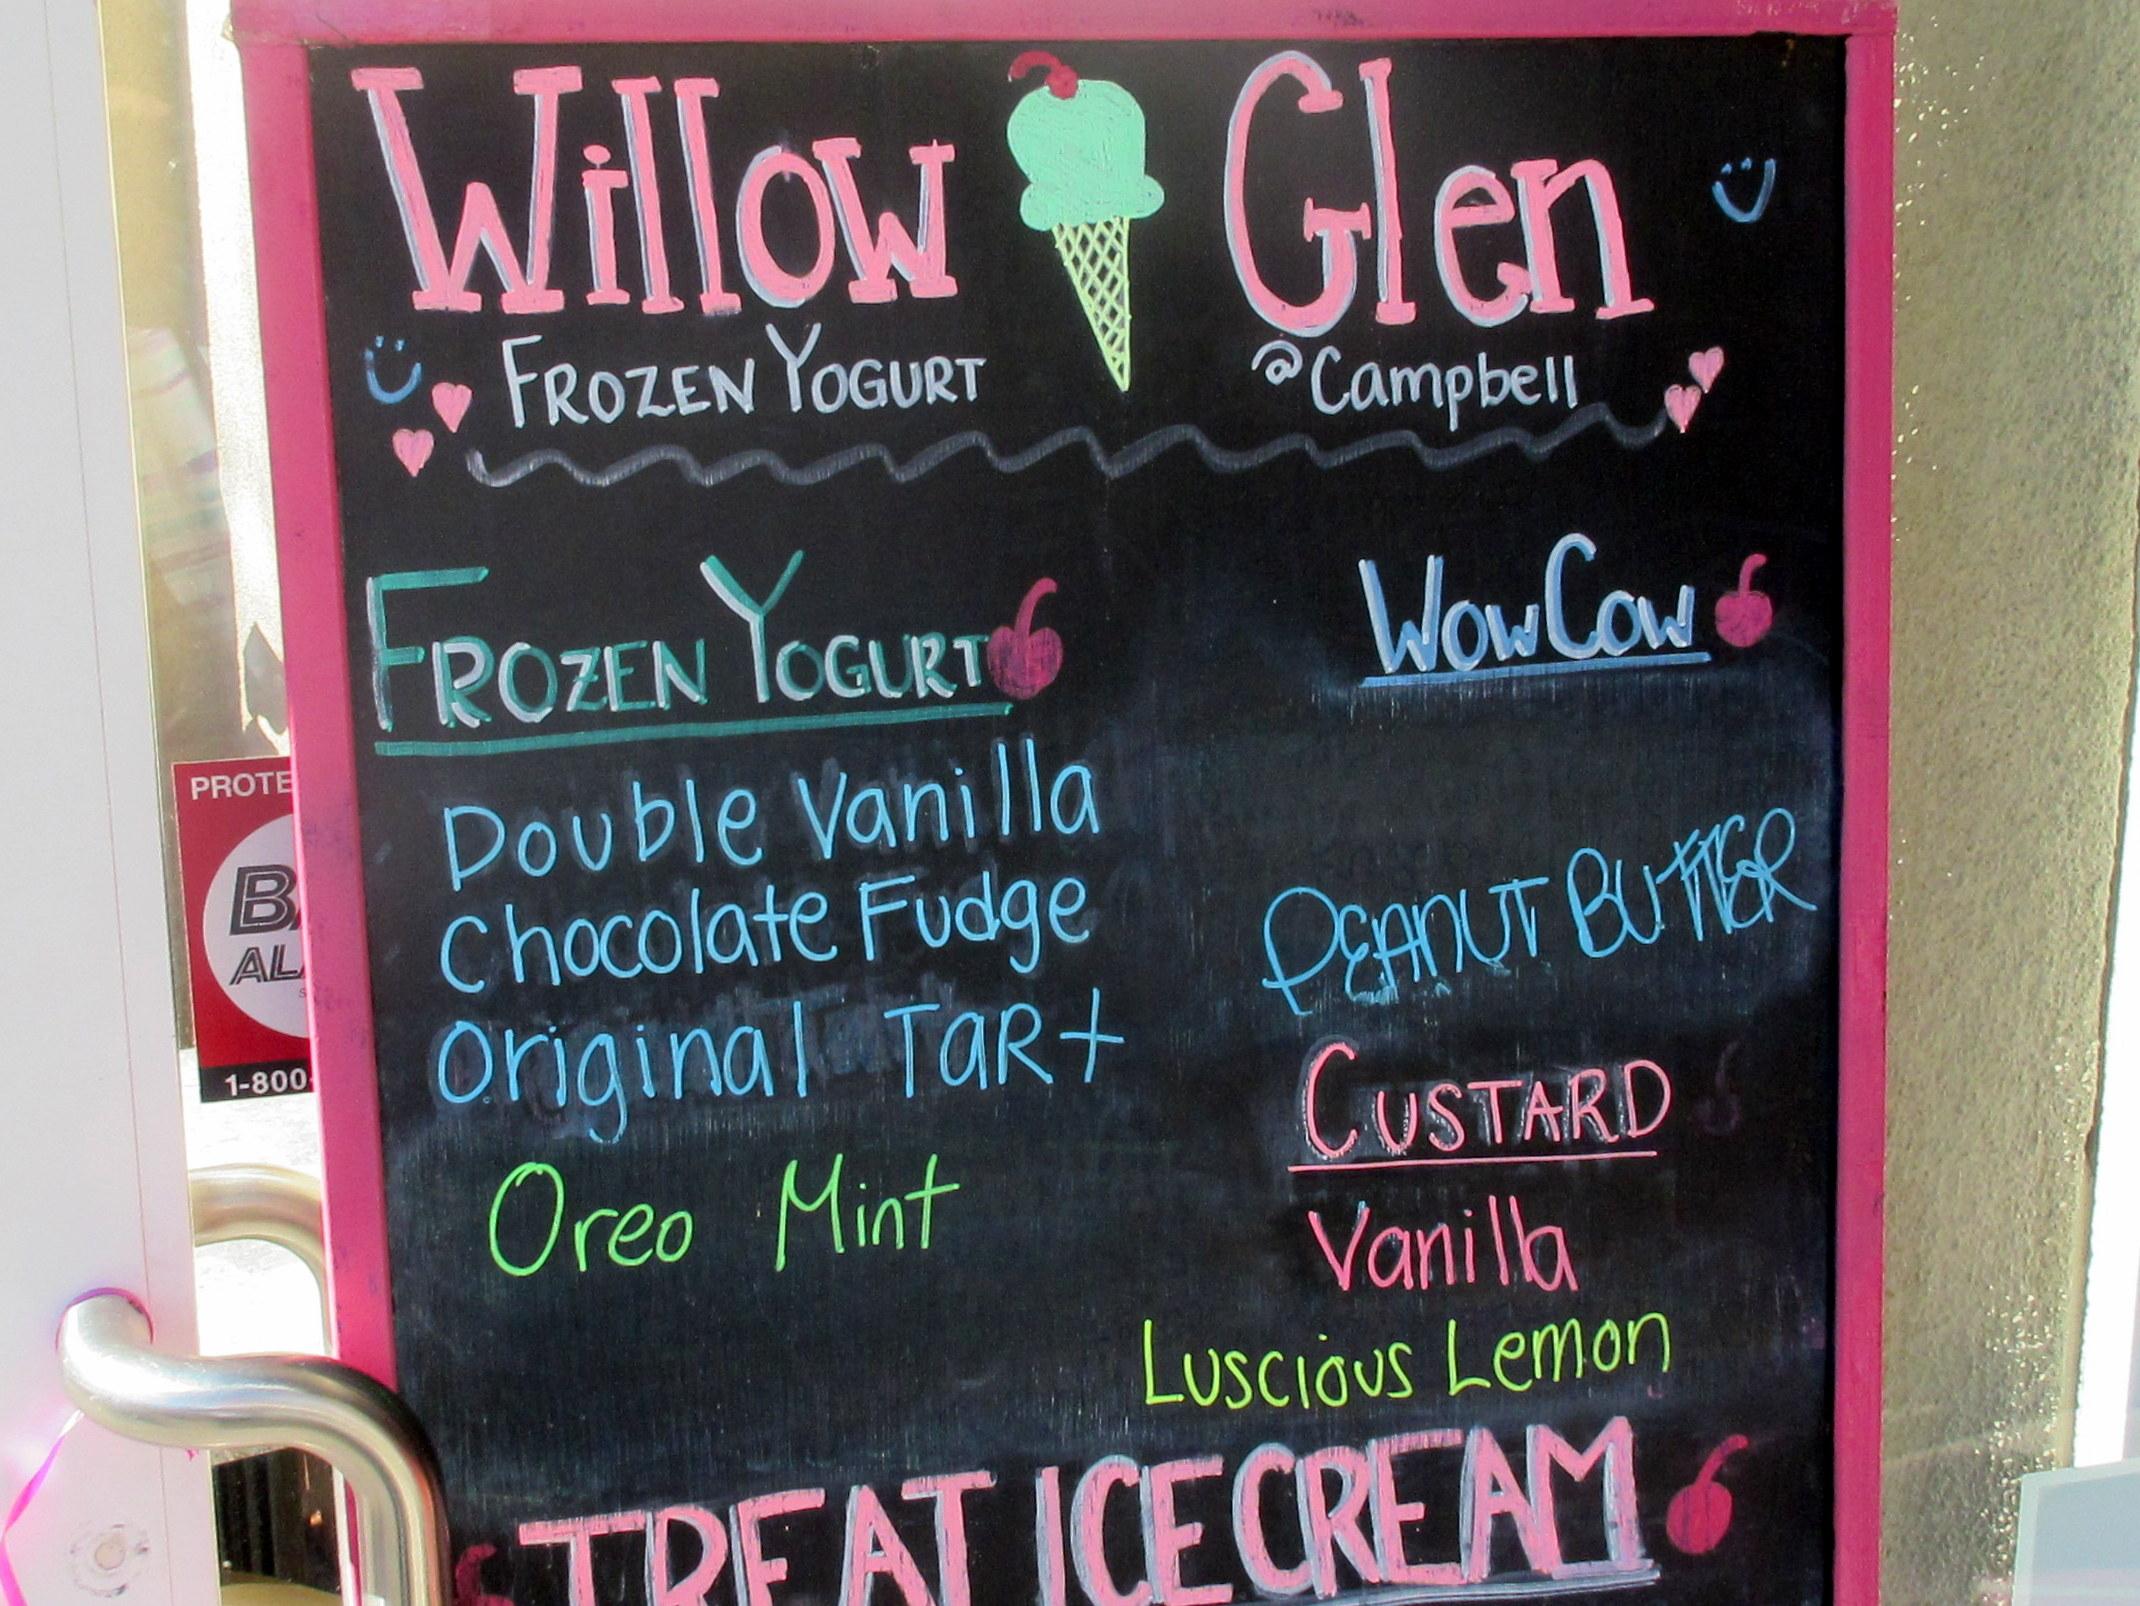 Willow Glen
FROZEN YOGURT @Campbell
FROZEN YOGURT
Double Vanilla
Chocolate Fudge
Original TARt
Oreo Mint
WOWCOW
PEANUT BUTTER
CUSTARD
Vanilla
Luscious Lemon
TREAT ICE CREAM
PROTE
BA
ALA
1-800-